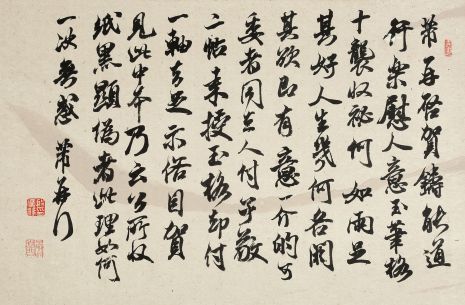 芾再啓賀鑄能道
行樂慰人意玉筆格
十襲收秘何如兩足
其好人生幾何各閼
其欲即有意一介的可
委者同去人付子敬
二帖來授玉格却付
一軸去足示俗目賀
見此中本乃云公所收
紙黑顯偽者此理如何
一決無惑 芾再行